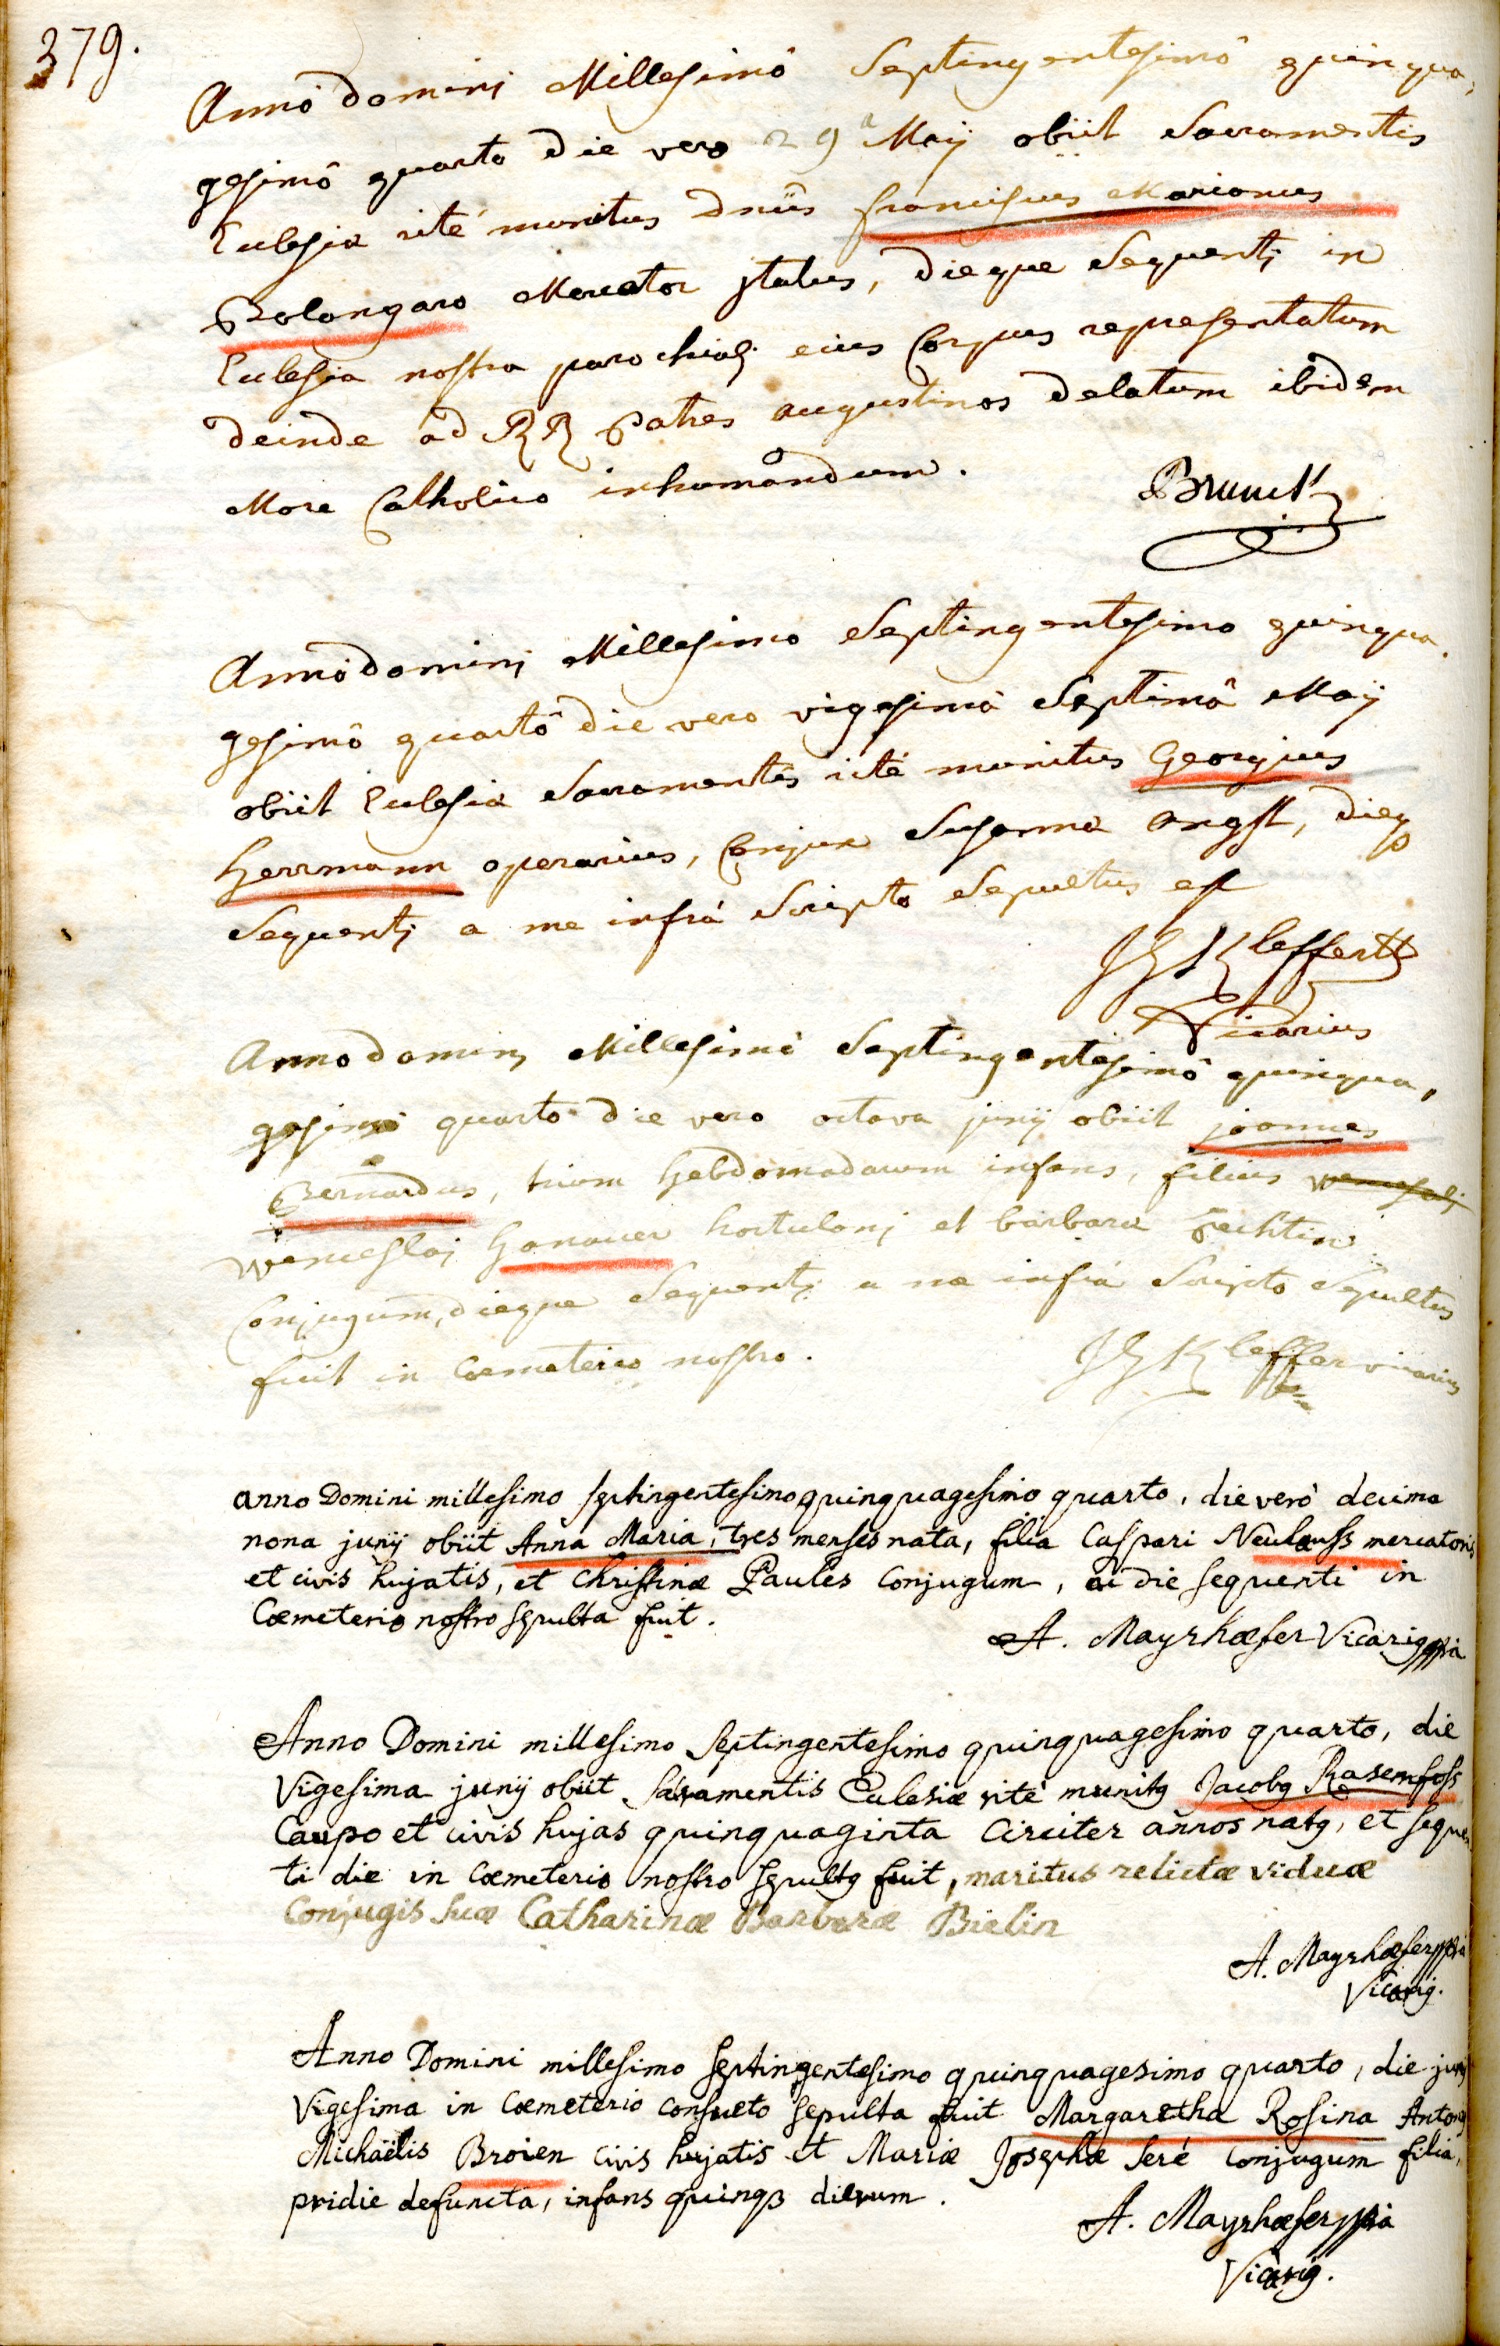 379.
Annô Dominj Millesimô Septingentesimô quinqua,
gesimô quarto Die vero 29a Maÿ obiit Sacramentis
Eclesiæ rité munitus Dnüs franciscus Marianus
Bolongaro Mercator jtalus, Dieque Sequentj in
Eclesia nostra parochialj eius Corpus representatum
deinde ad RR Patres augustinos delatum ibidem
More Catholico inhumandum.
Brunck
Annô dominj Millesimo Septingentesimo quinqua,
gesimô quartô die vero vigesimâ Septimâ Maÿ
obiit Eclesiæ Sacramentis rité munitus Georgius
Herrmann operarius, Conjux Susanna angst, dieq
Sequentj a me infrá Scripto Sepultus est
JG Kleffertz
Vicarius
Anno dominj Millesimô Septingentesimô quinqua,
gesimô quarto die vero octava junÿ obiit joannes
Bernardus, trium hebdomadarum infans, filius
wenceslaj Hanauer hortulanj et barbaræ
Conjugum, dieque Sequentj a me infrá Scripto Sepultus
fuit in Cœmeterio nostro.
JG Kleffer vicarius
anno Domini millesimo septingentesimo quinquagesimo quarto, die verò decima
nona junÿ obiit Anna Maria, tres menses nata, filia Caspari Neuhauss mercatoris
et civis hujatis, et Christinæ Paules Conjugum, ac die sequenti in
Cœmeterio nostro sepulta fuit.
A. Mayrhœfer Vicarig mppria
Anno Domini millesimo septingentesimo quinquagesimo quarto, die
Vigesima junÿ obiit Sacramentis Eclesiæ ritè munitg Jacobg Rasenfoss
Caupo et civis hujas quinquaginta Circiter annos natg, et sequen
ti die in Cœmeterio nostro sepultg fuit, maritus relictæ viduæ
Conjugis suæ Catharinæ Barbaræ Bielin
A. Mayrhœfer mppria
Vicarig.
Anno Domini millesimo septingentesimo quinquagesimo quarto, die junÿ
Vigesima in Cœmeterio consueto sepulta fuit Margaretha Rosina Antonÿ
Michäelis Broien civis hujatis et Mariæ Josephæ Seré conjugum filia,
pridie defuncta, infans quinqȝ dierum.
A. Mayrhœfer mppria
Vicarig.